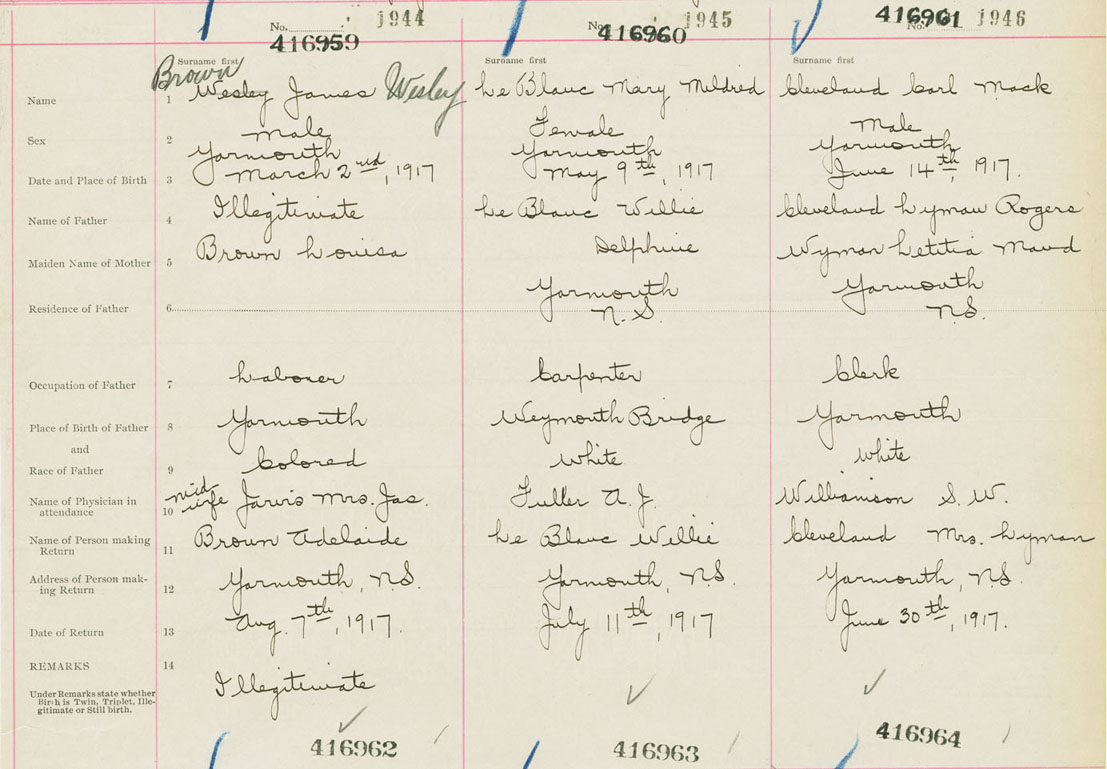 1944
No.
416959
1945
No.
416960
416961
No.
1946
Surname first
Surname first
Surname first
Brown
Name
1
Wesley James
Wesley
Le Blanc Mary Mildred
Cleveland Carl Mack
Sex
2
Male
Female
Male
Date and Place of Birth
3
Yarmouth
March 2nd, 1917
Yarmouth
May 9th, 1917
Yarmouth
June 14th, 1917.
Name of Father
4
Illegitimate
Le Blanc Willie
Cleveland Lyman Rogers
Maiden Name of Mother
5
Brown Louisa
Delphine
Wyman Letitia Maud
Residence of Father
6
Yarmouth
N.S.
Yarmouth
NS.
Occupation of Father
7
Laborer
Carpenter
Clerk
Place of Birth of Father
8
Yarmouth
Weymouth Bridge
Yarmouth
and
Race of Father
9
Colored
White
White
Name of Physician in
attendance
10
mid
wife Jarvis Mrs. Jas.
Fuller A. J.
Williamson S. W.
Name of Person making
Return
11
Brown Adelaide
Le Blanc Willie
Cleveland Mrs. Lyman
Address of Person mak-
ing Return
12
Yarmouth, NS.
Yarmouth, NS.
Yarmouth, NS.
Date of Return
13
Aug. 7th, 1917.
July 11th, 1917
June 30th, 1917.
REMARKS
14
Under Remarks state whether
Birth is Twin, Triplet, Ille-
gitimate or Still birth.
Illegitimate
416962
416963
416964